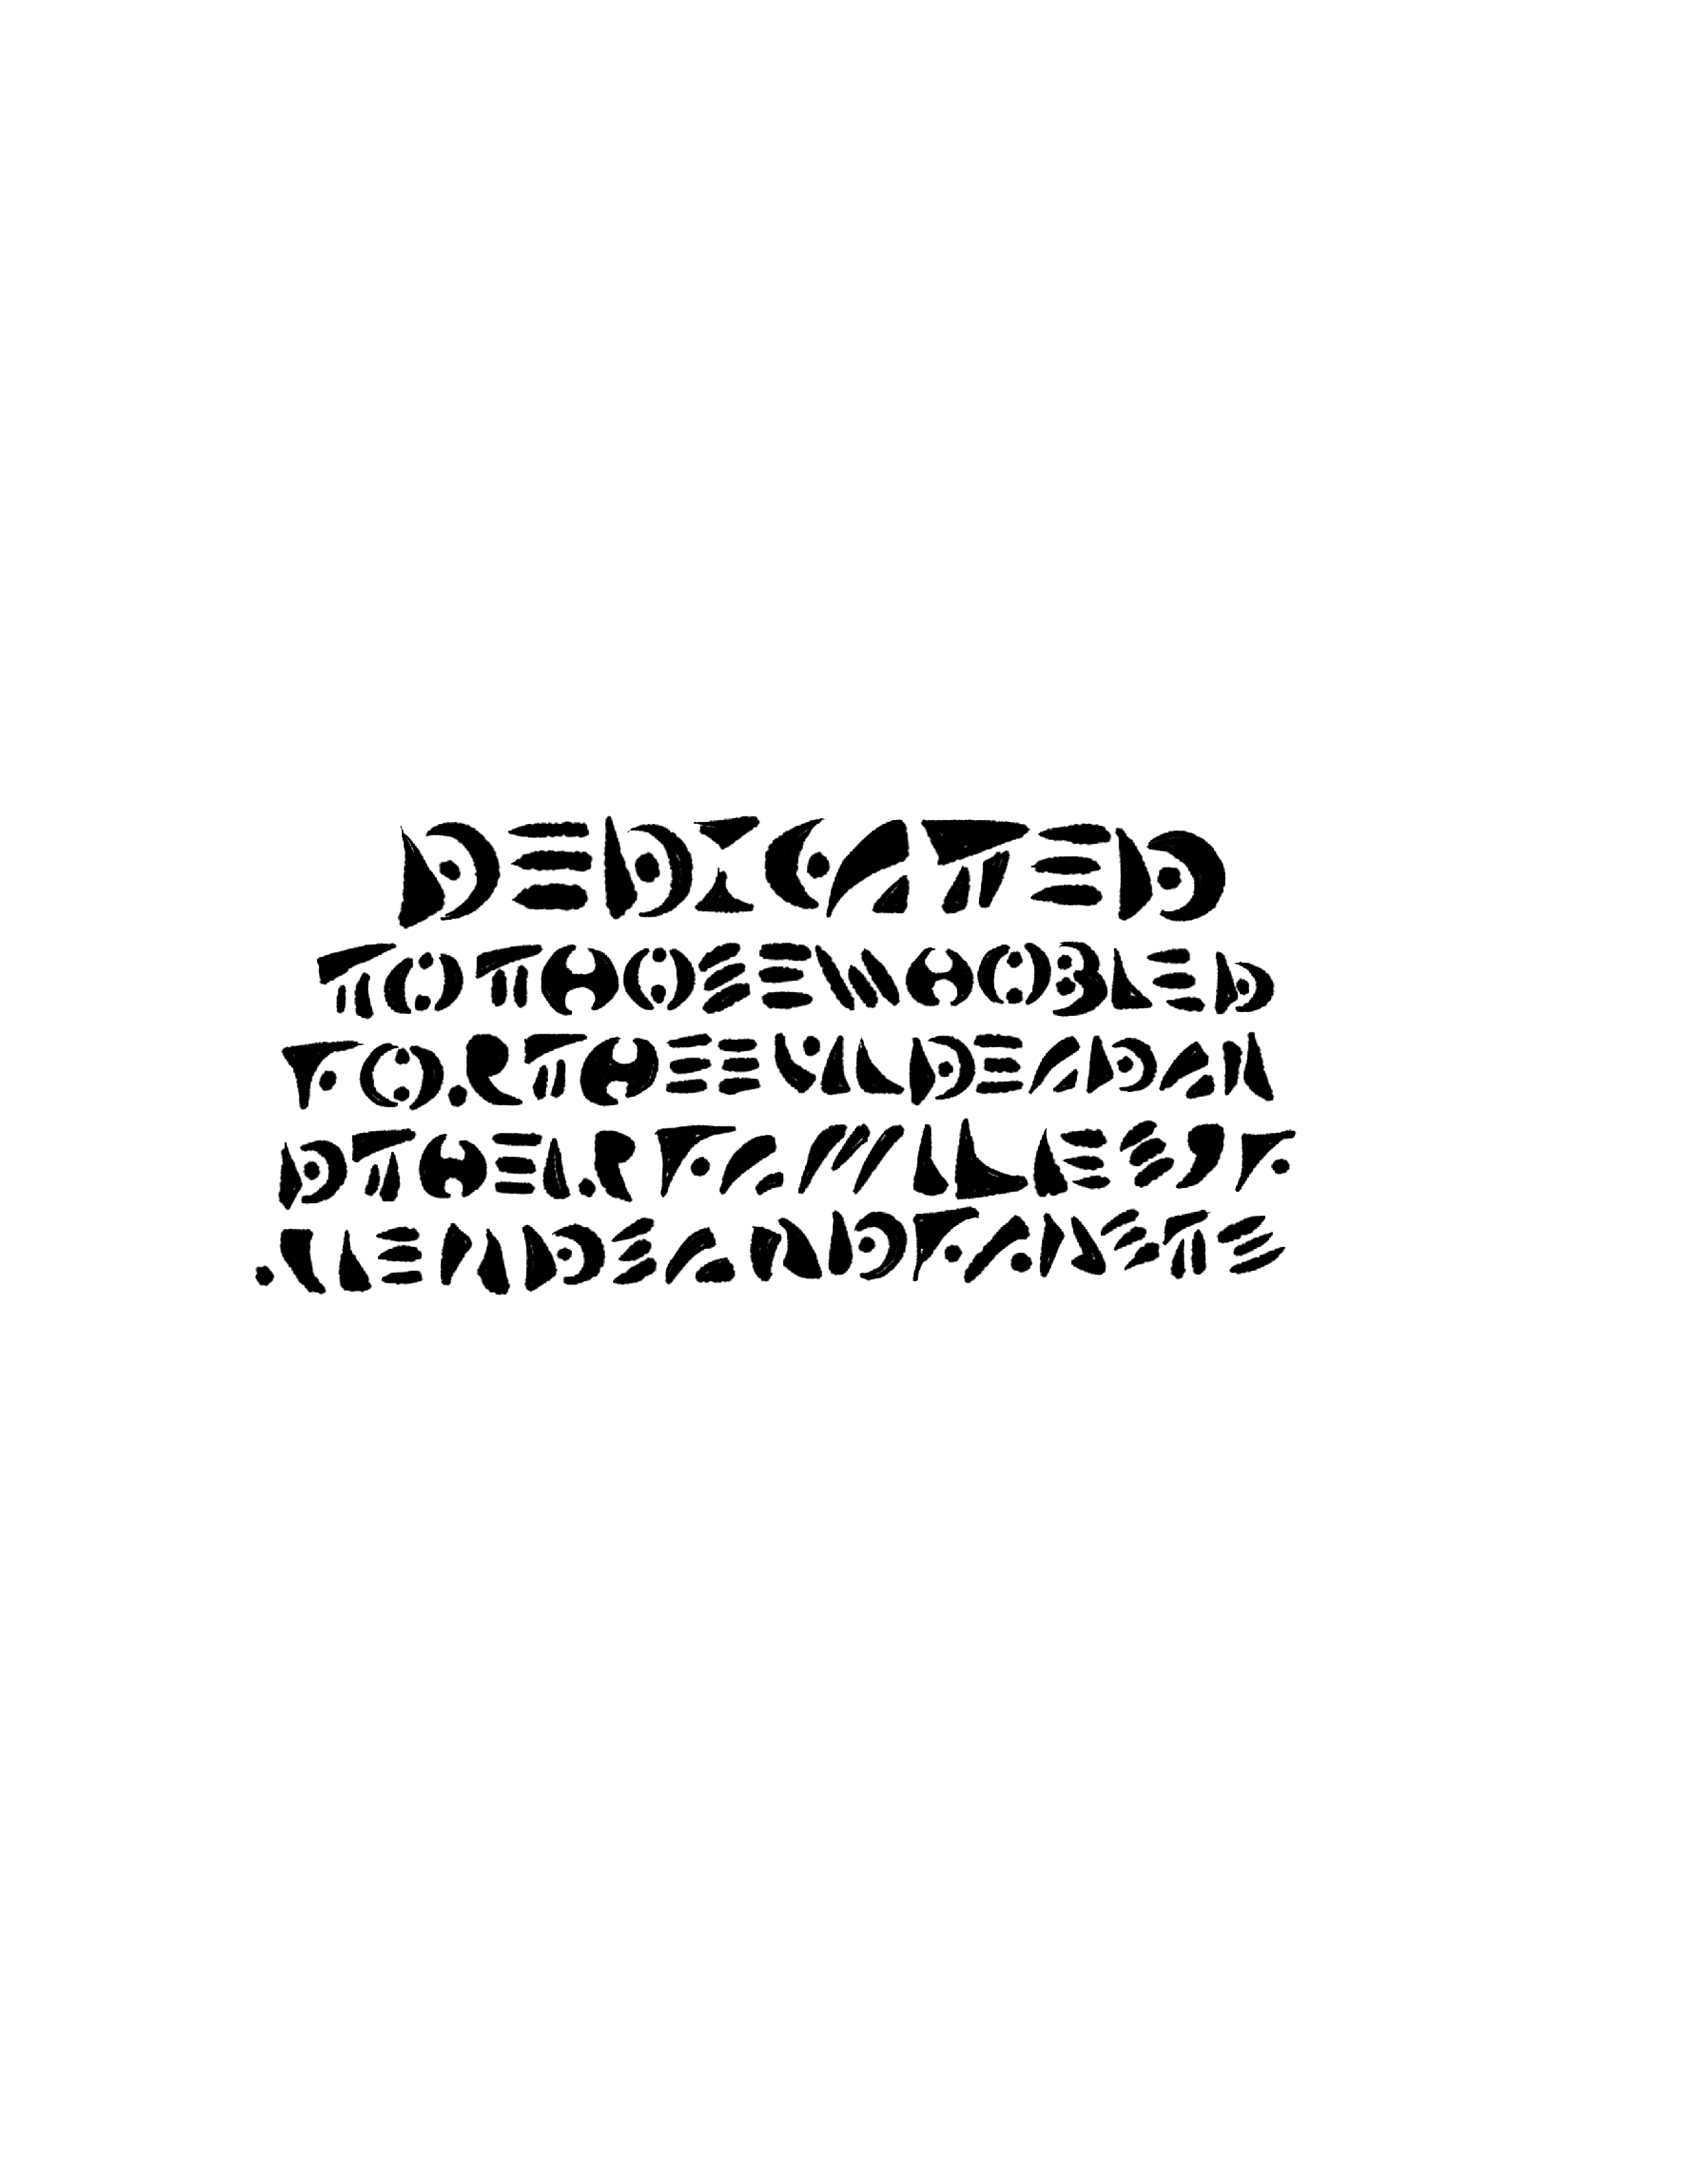 DEDICATED
TO THOSE WHO BLED
FOR THE EVIL DEAD AN
D THEIR FAMILIES, F
RIENDS AND FANS